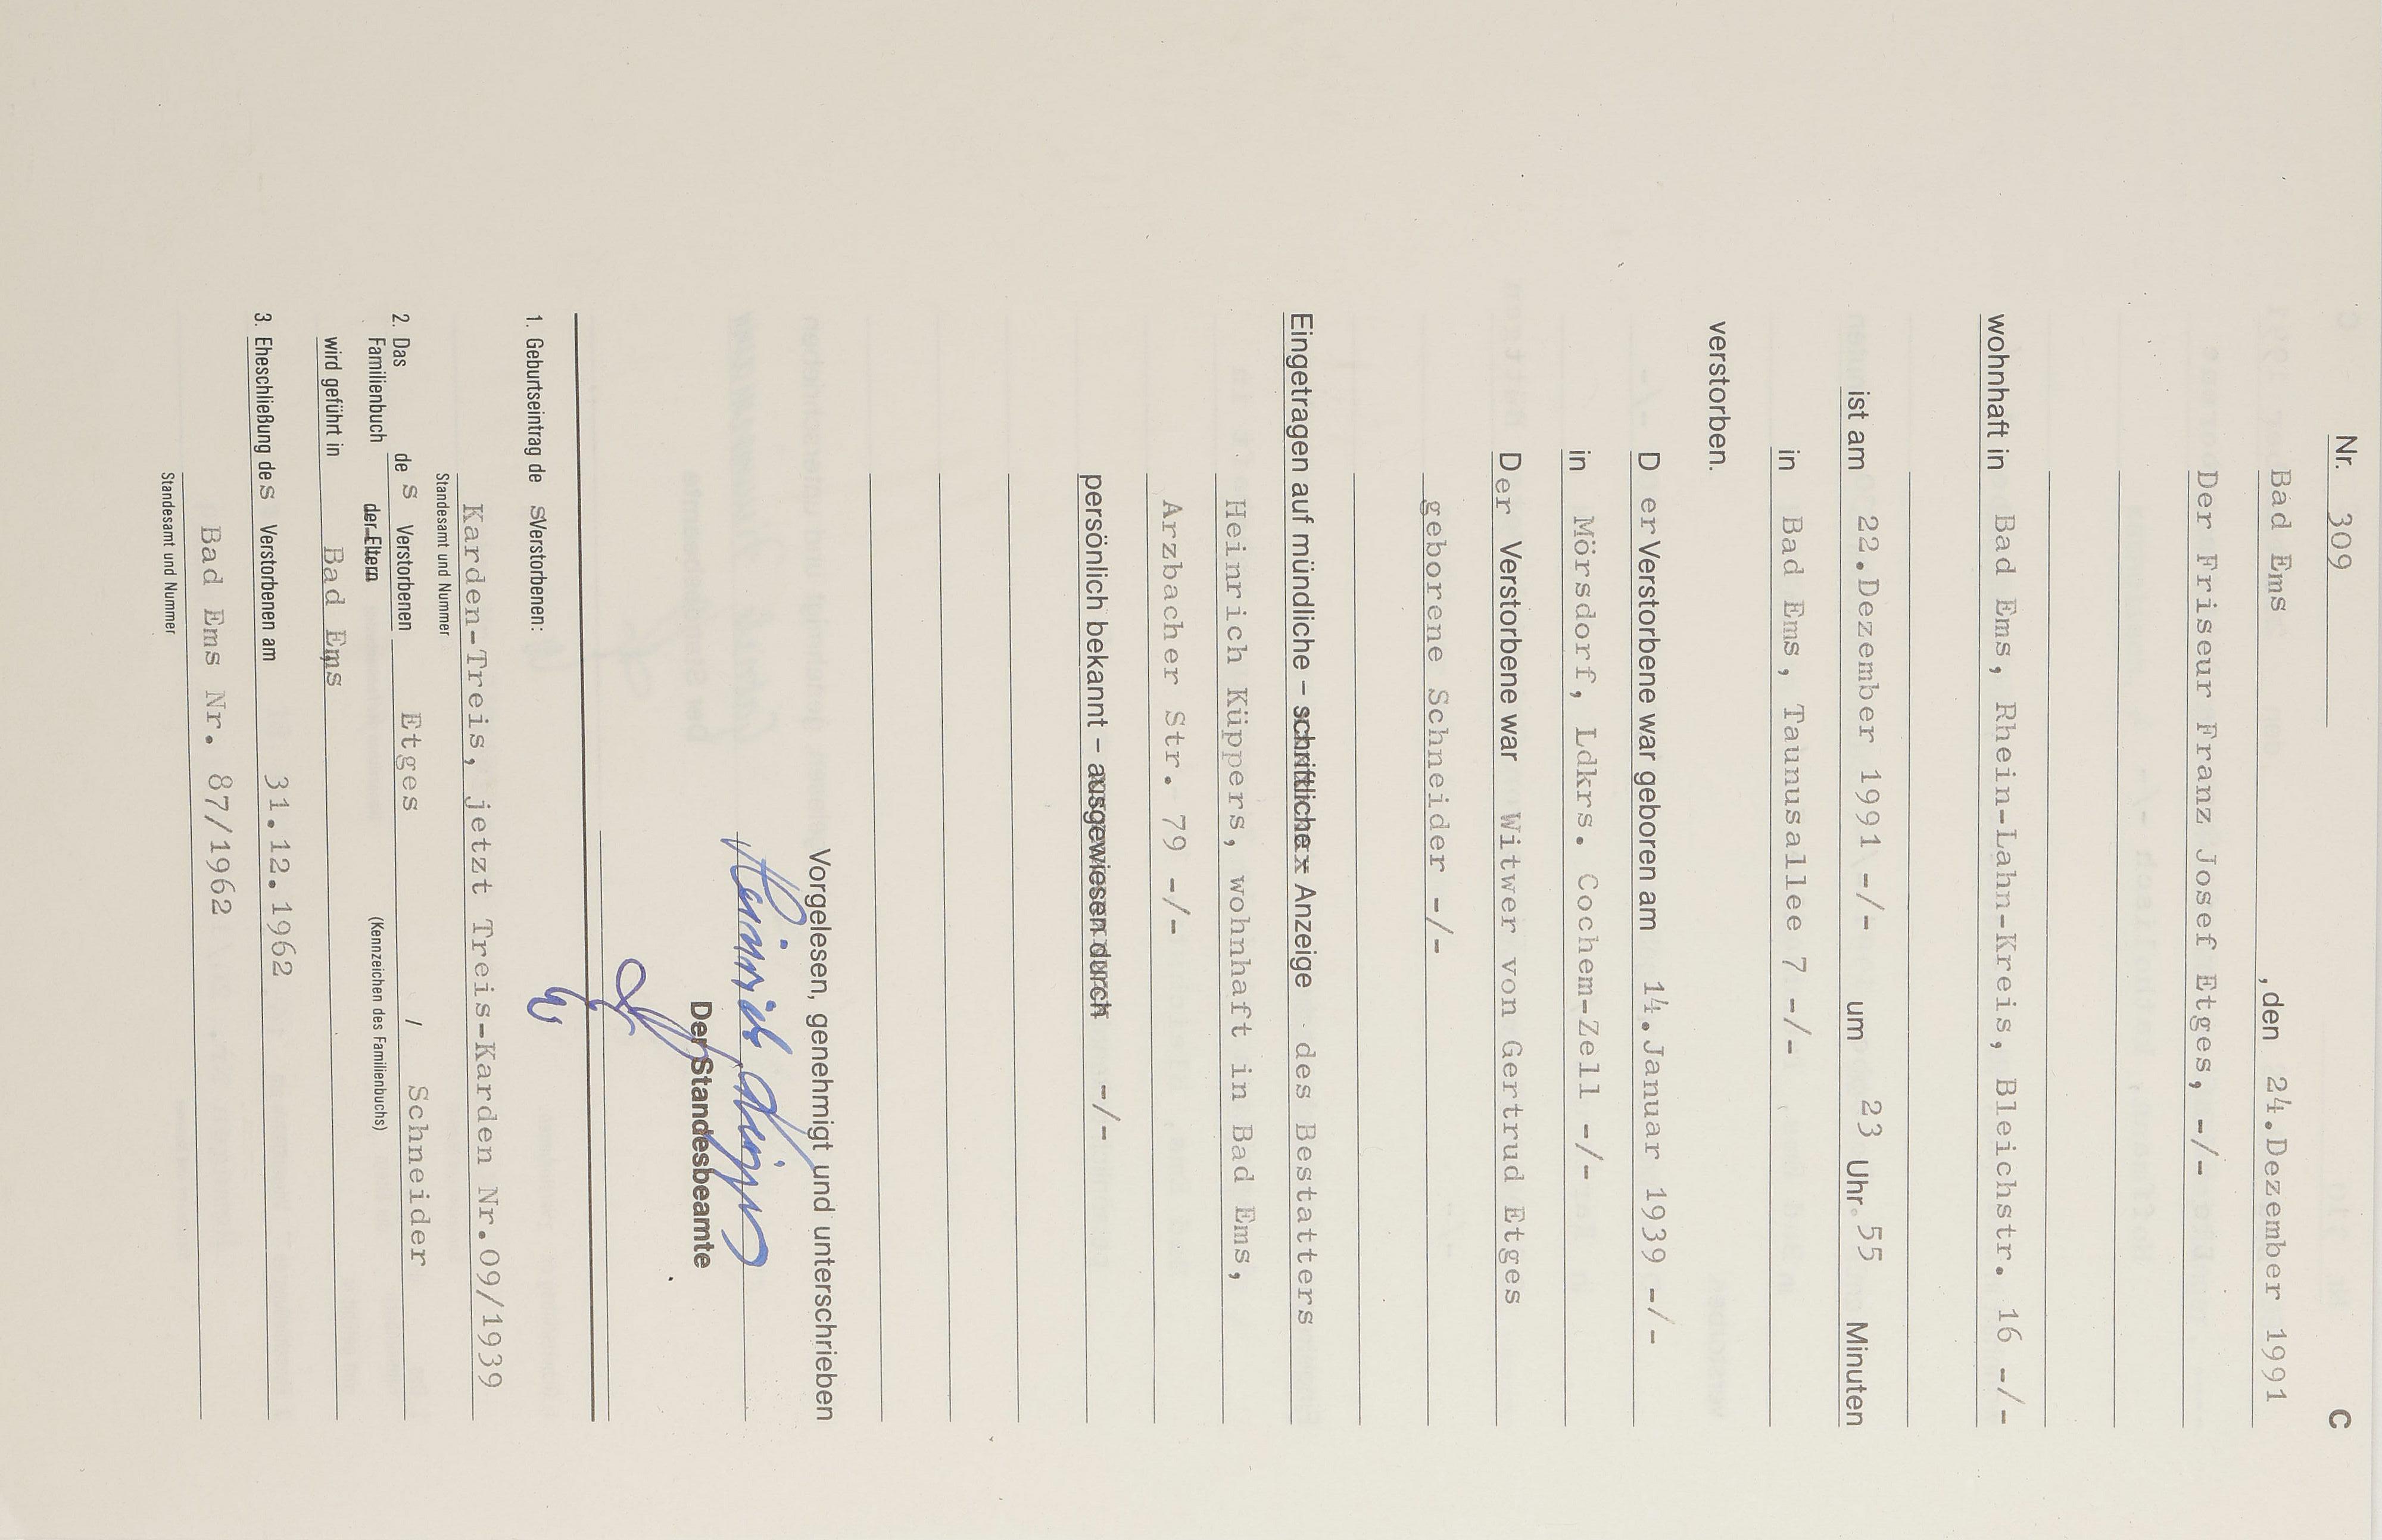 Nr. 309 C
Bad Ems , den 24.Dezember 1991
Der Friseur Franz Josef Etges, -/-
wohnhaft in Bad Ems, Rhein-Lahn-Kreis, Bleichstr. 16 -/-
ist am 22.Dezember 1991 -/- um 23 Uhr 55 Minuten
in Bad Ems, Taunusallee 7 -/-
verstorben.
D er Verstorbene war geboren am 14.Januar 1939 -/-
in Mörsdorf, Ldkrs. Cochem-Zell -/-
Der Verstorbene war Witwer von Gertrud Etges
geborene Schneider -/-
Eingetragen auf mündliche – schriftliche x Anzeige des Bestatters
Heinrich Küppers, wohnhaft in Bad Ems,
Arzbacher Str. 79 -/-
persönlich bekannt – ausgewiesen durch -/-
Vorgelesen, genehmigt und unterschrieben
Heinrich Küppers
Der Standesbeamte
1. Geburtseintrag de s Verstorbenen:
Karden-Treis, jetzt Treis-Karden Nr.09/1939
Standesamt und Nummer
2. Das Familienbuch de s Verstorbenen Etges / Schneider
der Eltern (Kennzeichen des Familienbuchs)
wird geführt in Bad Ems
3. Eheschließung des Verstorbenen am 31.12.1962
Bad Ems Nr. 87/1962
Standesamt und Nummer